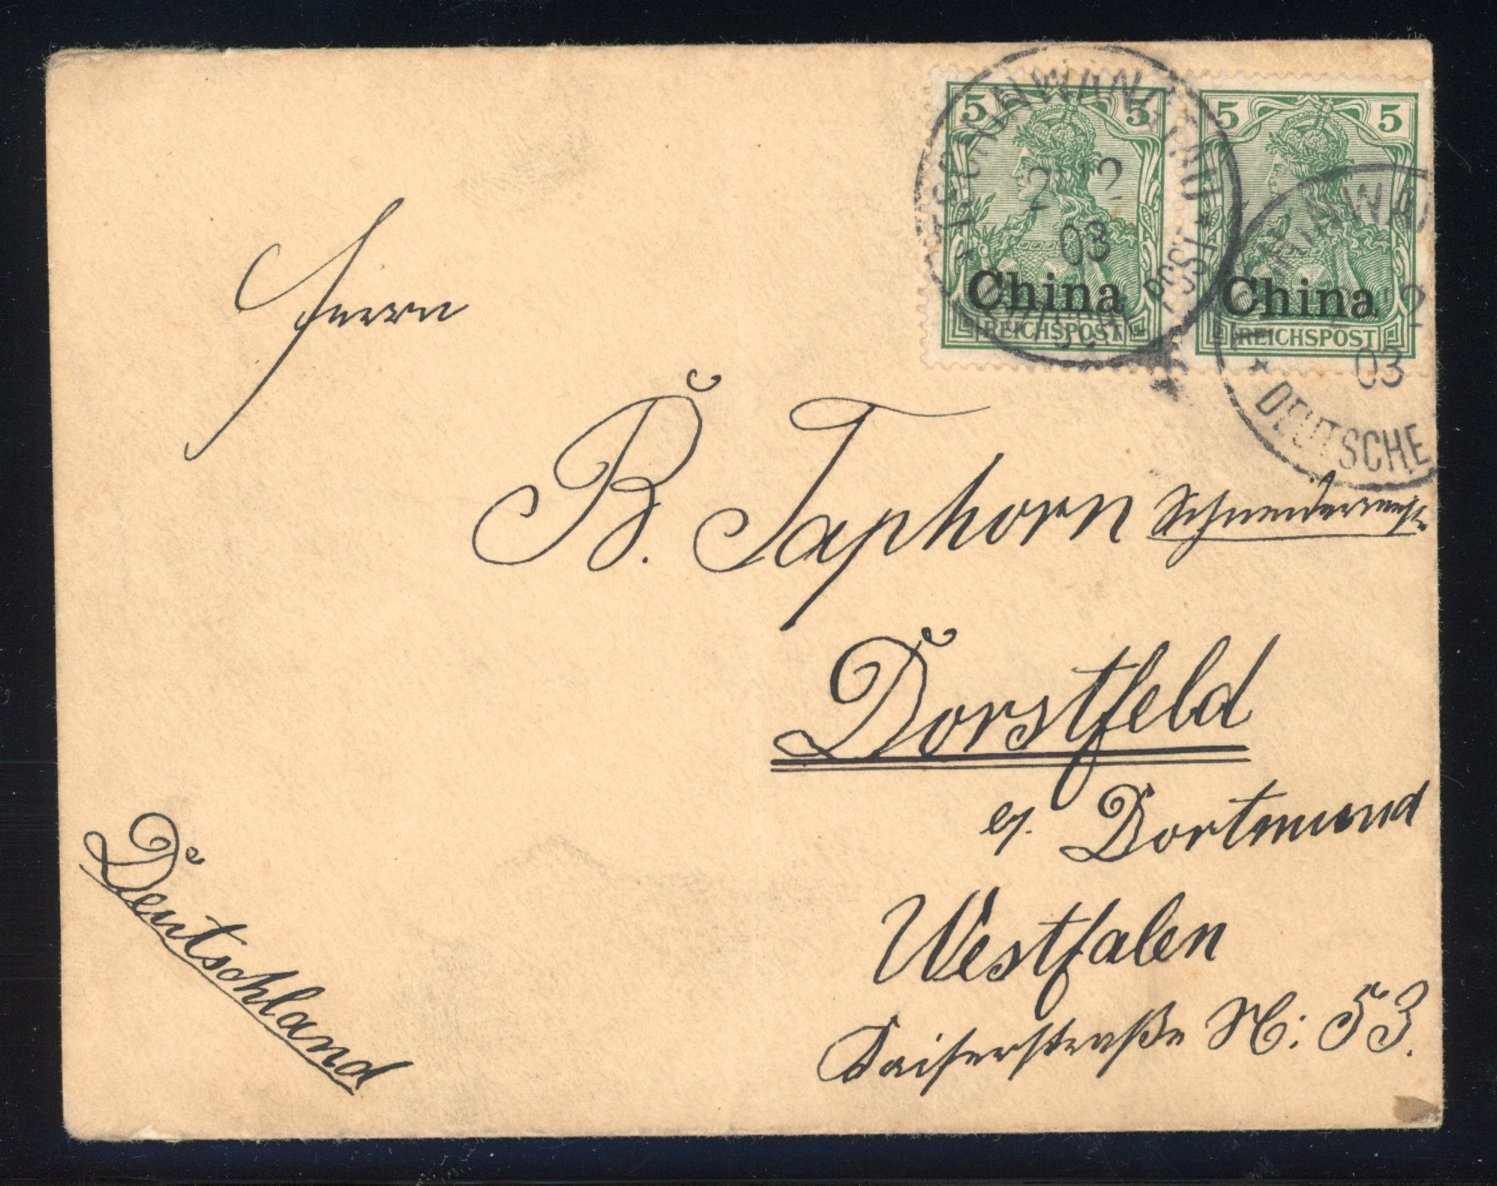 5 5 5 5
TSCHINWANGTAU
2 2
03
DEUTSCHE POST
China China
REICHSPOST REICHSPOST
2
03
DEUTSCHE
Herrn
B. Taphorn Schneidermstr.
Dorstfeld
b/. Dortmund
Westfalen
Kaiserstraße N: 53.
Deutschland